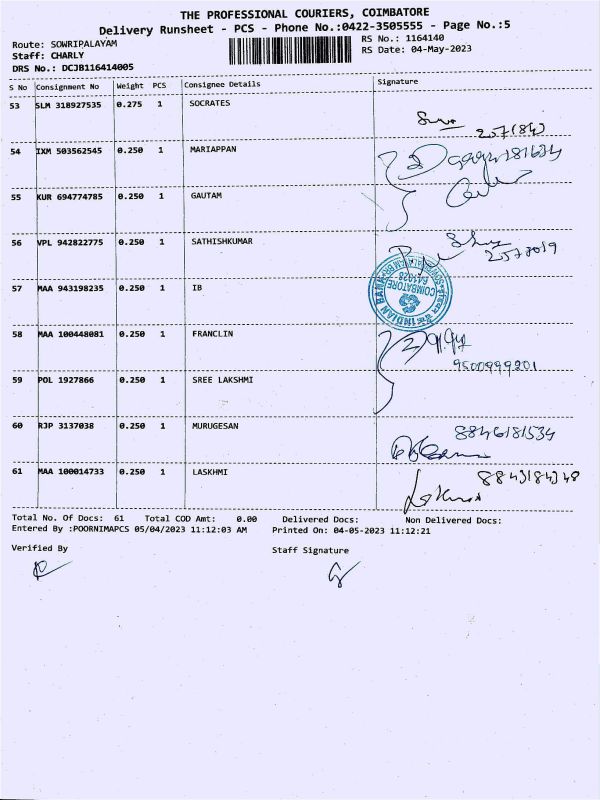 THE PROFESSIONAL COURIERS, COIMBATORE
Delivery Runsheet - PCS - Phone No.:0422-3505555 - Page No.:5
Route: SOWRIPALAYAM
RS No.: 1164140
Staff: CHARLY
RS Date: 04-May-2023
DRS No.: DCJB116414005
S No Consignment No Weight PCS Consignee Details Signature
53 SLM 318927535 0.275 1 SOCRATES
54 IXM 503562545 0.250 1 MARIAPPAN
55 KUR 694774785 0.250 1 GAUTAM
56 VPL 942822775 0.250 1 SATHISHKUMAR
57 MAA 943198235 0.250 1 IB
INDIAN BANK
COIMBATORE
641028
58 MAA 100448081 0.250 1 FRANCLIN
9500999201
59 POL 1927866 0.250 1 SREE LAKSHMI
60 RJP 3137038 0.250 1 MURUGESAN
61 MAA 100014733 0.250 1 LASKHMI
Total No. Of Docs: 61 Total COD Amt: 0.00 Delivered Docs: Non Delivered Docs:
Entered By :POORNIMAPCS 05/04/2023 11:12:03 AM Printed On: 04-05-2023 11:12:21
Verified By Staff Signature